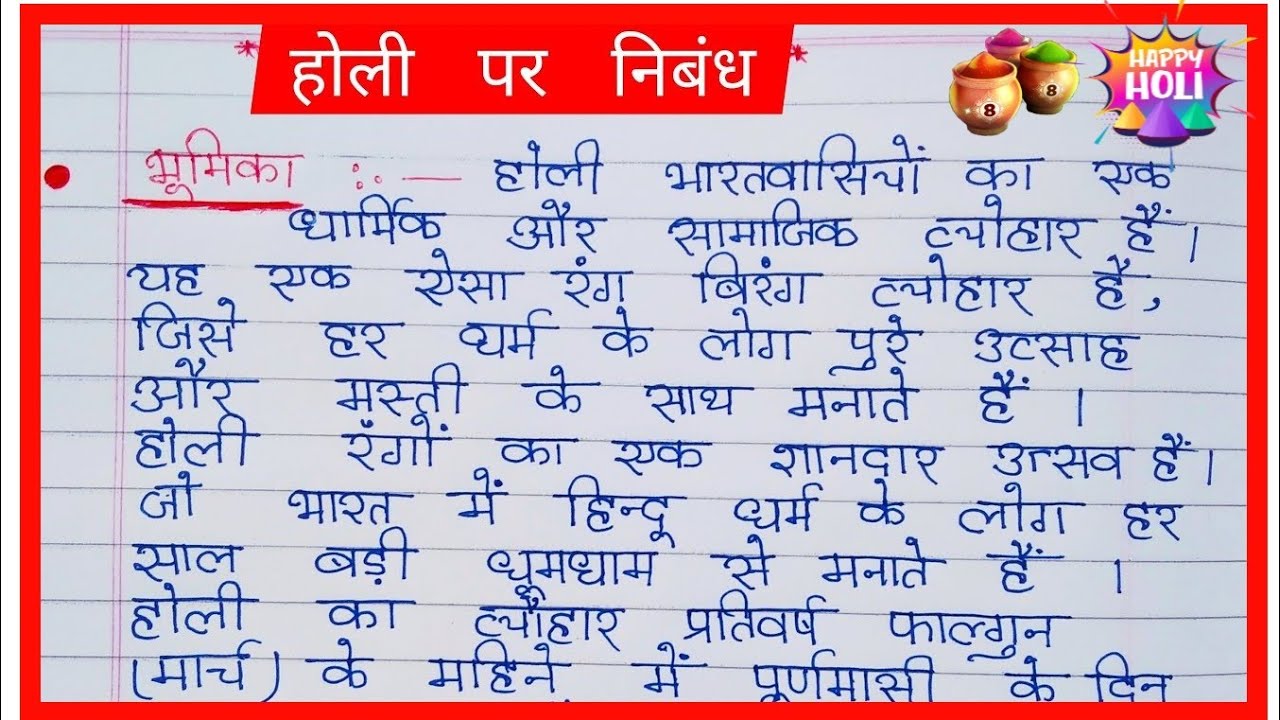 होली पर निबंध
HAPPY
HOLI
8 8
भूमिका :- होली भारतवासियों का एक
धार्मिक और सामाजिक त्योहार हैं।
यह एक ऐसा रंग बिरंग त्योहार है,
जिसे हर धर्म के लोग पुरे उत्साह
और मस्ती के साथ मनाते हैं ।
होली रंगों का एक शानदार उत्सव हैं।
जो भारत में हिन्दू धर्म के लोग हर
साल बड़ी धूमधाम से मनाते हैं ।
होली का त्यौहार प्रतिवर्ष फाल्गुन
(मार्च) के महिने में पूर्णमासी के दिन